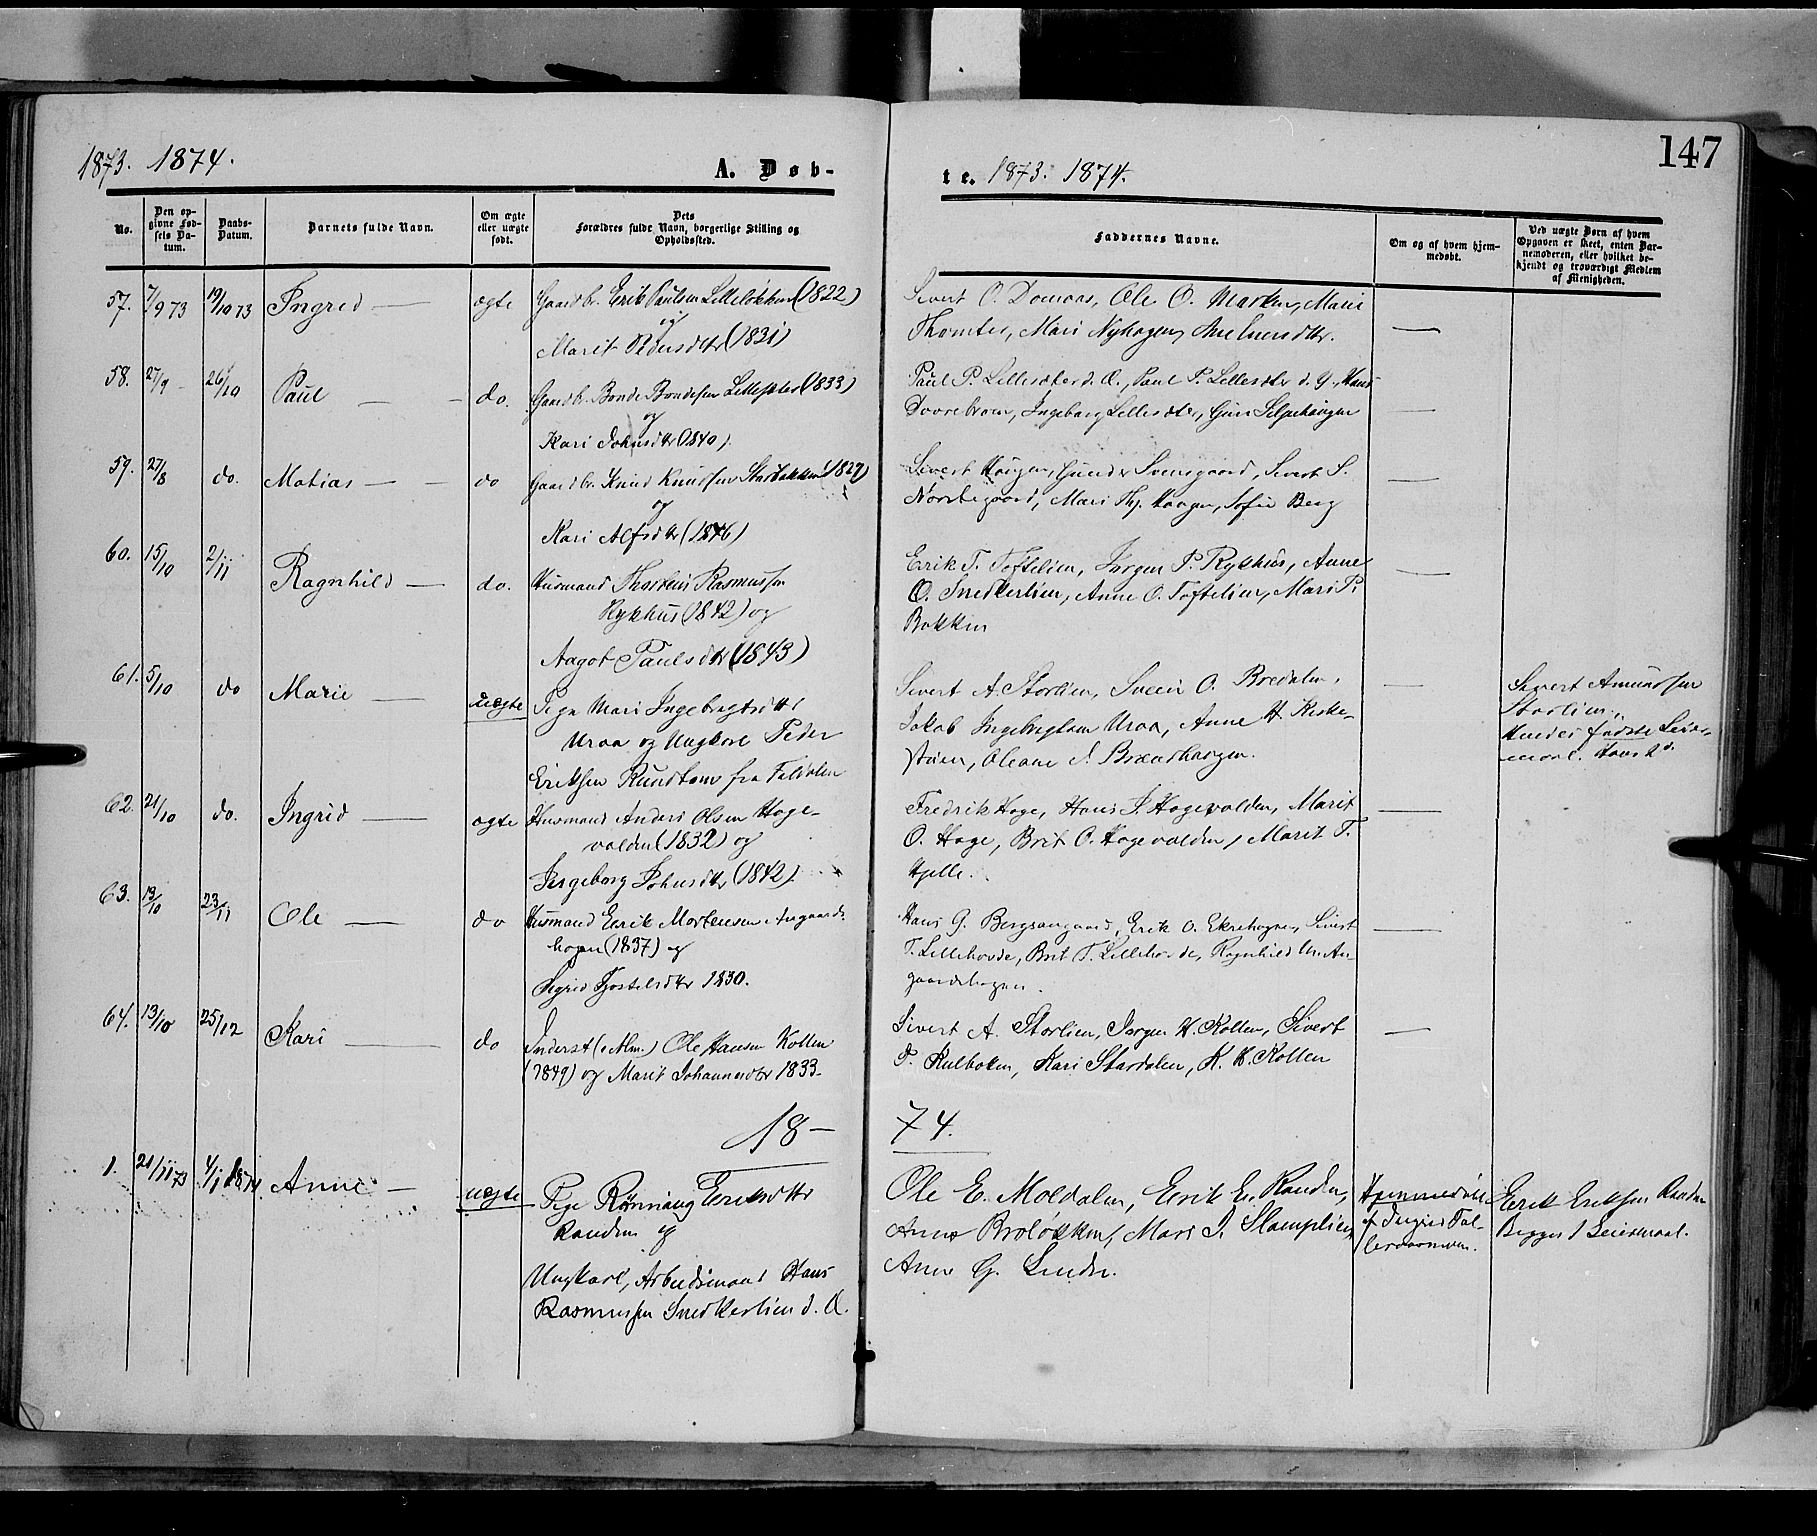 1873. 1874.
A. Døb-
te. 1873. 1874.
147
No.
Den op-
givne Fød-
sels Da-
tum.
Daabs-
Datum.
Barnets fulde Navn.
Om ægte
eller uægte
født.
Dets
Forældres fulde Navn, borgerlige Stilling og
Opholdssted.
Faddernes Navne.
Om og af hvem hjem-
medøbt.
Ved uægte Børn af hvem
Opgaven er skeet, enten Bar-
nemoderen, eller hvilket be-
kjendt og troværdigt Medlem
af Menigheden.
57. 7/9 73 19/10 73 Ingrid — ægte Gaardbr. Erik Paulsen Lilleløkken (1822)
og
Marit Pedersdtr (1831)
Sivert O. Domaas, Ole O. Marken, Marie
Thomter, Mari Nyhagen, Ane Iversdtr.
58. 27/9 - 26/10 Paul — - do. Gaardbr. Bonde Bondesen Lillesæter (1833)
og
Kari Johnsdtr (1840)
Paul P. Lillesæter d. Æ., Paul P. Lillesæter d. Y., Hans
Dovrebroen, Ingeborg Lillesæter, Guri Selpehaugen
59. 27/8 do. Matias — - do Gaardbr. Knud Knudsen Storbakken (1829)
og
Kari Alfsdtr (1846)
Sivert Haugen, Gunder Svensgaard, Sivert S.
Nørstegaard, Mari Thj. Haugen, Sofie Berg
60. 15/10 2/11 Ragnhild — do. Husmand Thorleis Rasmussen
Rykhus (1842) og
Aagot Paulsdtr (1843)
Erik T. Toftelien, Jørgen P. Rykhus, Anne
O. Snedkerlien, Anne O. Toftelien, Mari P.
Bakken
61. 5/10 do Marie — uægte Pige Mari Ingebrigtsdtr
Uraa og Ungkarl Peder
Eriksen Rundhom fra Foldalen
Sivert A. Storlien, Svein O. Bredalen,
Jakob Ingebrigtsen Uraa, Anne H. Kirke-
stuen, Oleane J. Brændhaugen.
Sivert Amundsen
Storlien.
Hendes første Leier-
maal. Hans d.
62. 21/10 do. Ingrid — ægte Husmand Anders Olsen Hage-
volden (1832) og
Ingeborg Johnsdtr (1842)
Fredrik Hage, Hans J. Hagevolden, Marit
O. Hage, Brit O. Hagevolden, Marit T.
Hjelle.
63. 13/10 23/11 Ole — do Husmand Erik Mortensen Angaards-
hagen (1837) og
Sigrid Tjostelsdtr 1830.
Hans G. Bergsengaard, Erik O. Ekrehagen, Sivert
T. Lillehovde, Brit T. Lillehovde, Ragnhild M. An-
gaardshagen.
64. 13/10 25/12 Kari — do Inderst (Alm.) Ole Hansen Kollen
(1849) og Marit Johannesdtr 1833.
Sivert A. Storlien, Jørgen H. Kollen, Sivert
P. Kulboken, Kari Stordalen, K. H. Kollen
18—
74.
1. 21/11 73 4/1 1874 Anne — uægte Pige Rønnaug Eriksdtr
Randen og
Ungkarl, Arbeidsmand Hans
Rasmussen Snedkerlien d. Æ.
Ole E. Moldalen, Erik E. Randen,
Anne Broløkken, Mari J. Slamplien,
Anne G. Linde.
Hjemmedøbt
af Ingrid
Erik Eriksen Randen
Begges 1 Leiermaal.